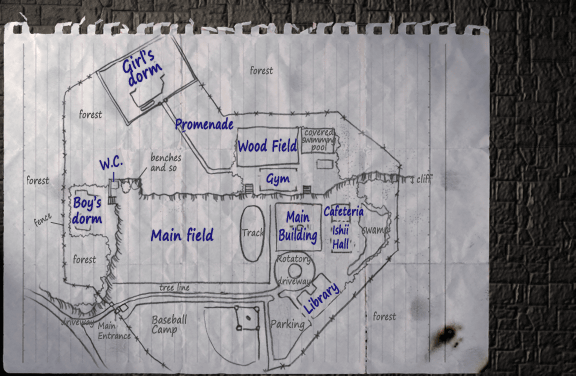 Girl's
dorm
forest
forest
Promenade
Wood Field
covered
swimming
pool
W.C.
benches
and so
Gym
forest
cliff
Boy's
dorm
fence
Main field
Track
Main
Building
Cafeteria
Ishii
Hall
swamp
forest
Rotatory
driveway
tree line
Library
driveway
Main
Entrance
Baseball
Camp
Parking
forest